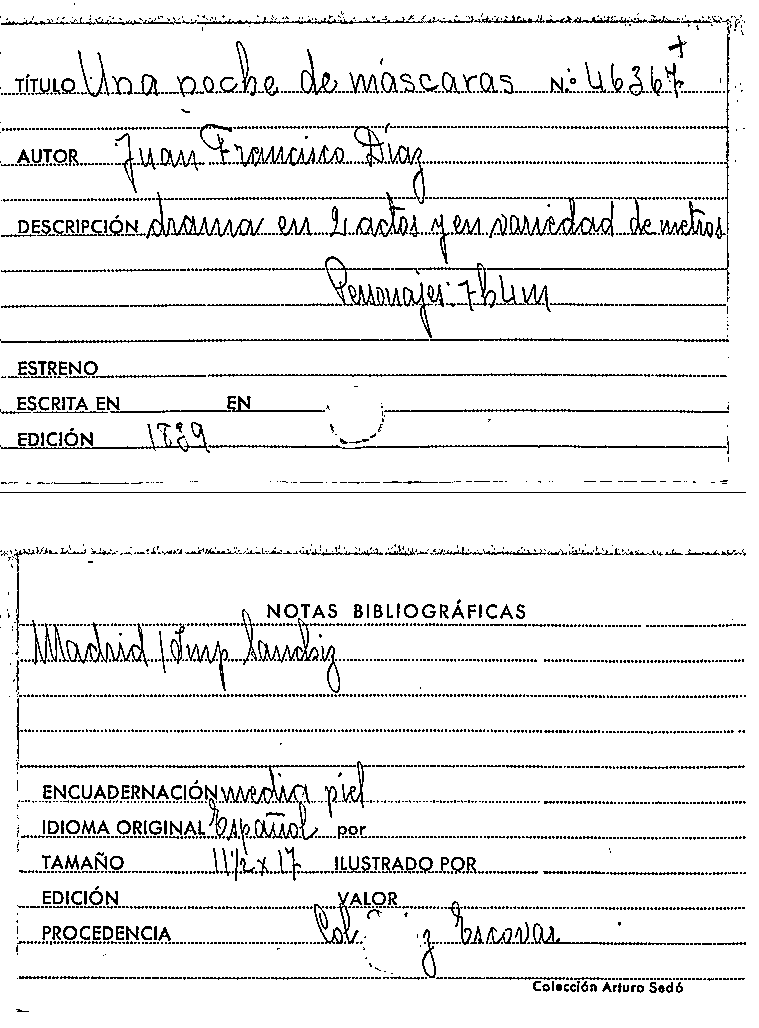 TÍTULO Una noche de máscaras N.º 46367 +
AUTOR Juan Francisco Díaz
DESCRIPCIÓN drama en 2 actos y en variedad de metros
Personajes: 7h 4m
ESTRENO
ESCRITA EN EN
EDICIÓN 1839
NOTAS BIBLIOGRÁFICAS
Madrid / Imp Sanchiz
ENCUADERNACIÓN media piel
IDIOMA ORIGINAL Español por
TAMAÑO 11½ x 17 ILUSTRADO POR
EDICIÓN VALOR
PROCEDENCIA Col Escovar
Colección Arturo Sedó